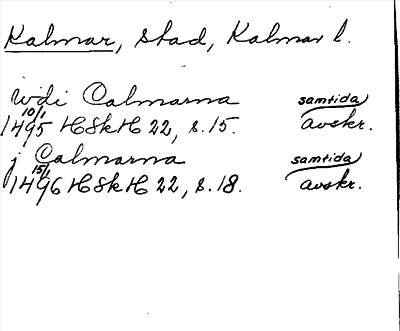 Kalmar, stad, Kalmar l.
wdi Calmarna samtida
10/1
1495 HSkH 22, s.15. avskr.
j Calmarna samtida
15/1
1496 HSkH 22, s.18. avskr.